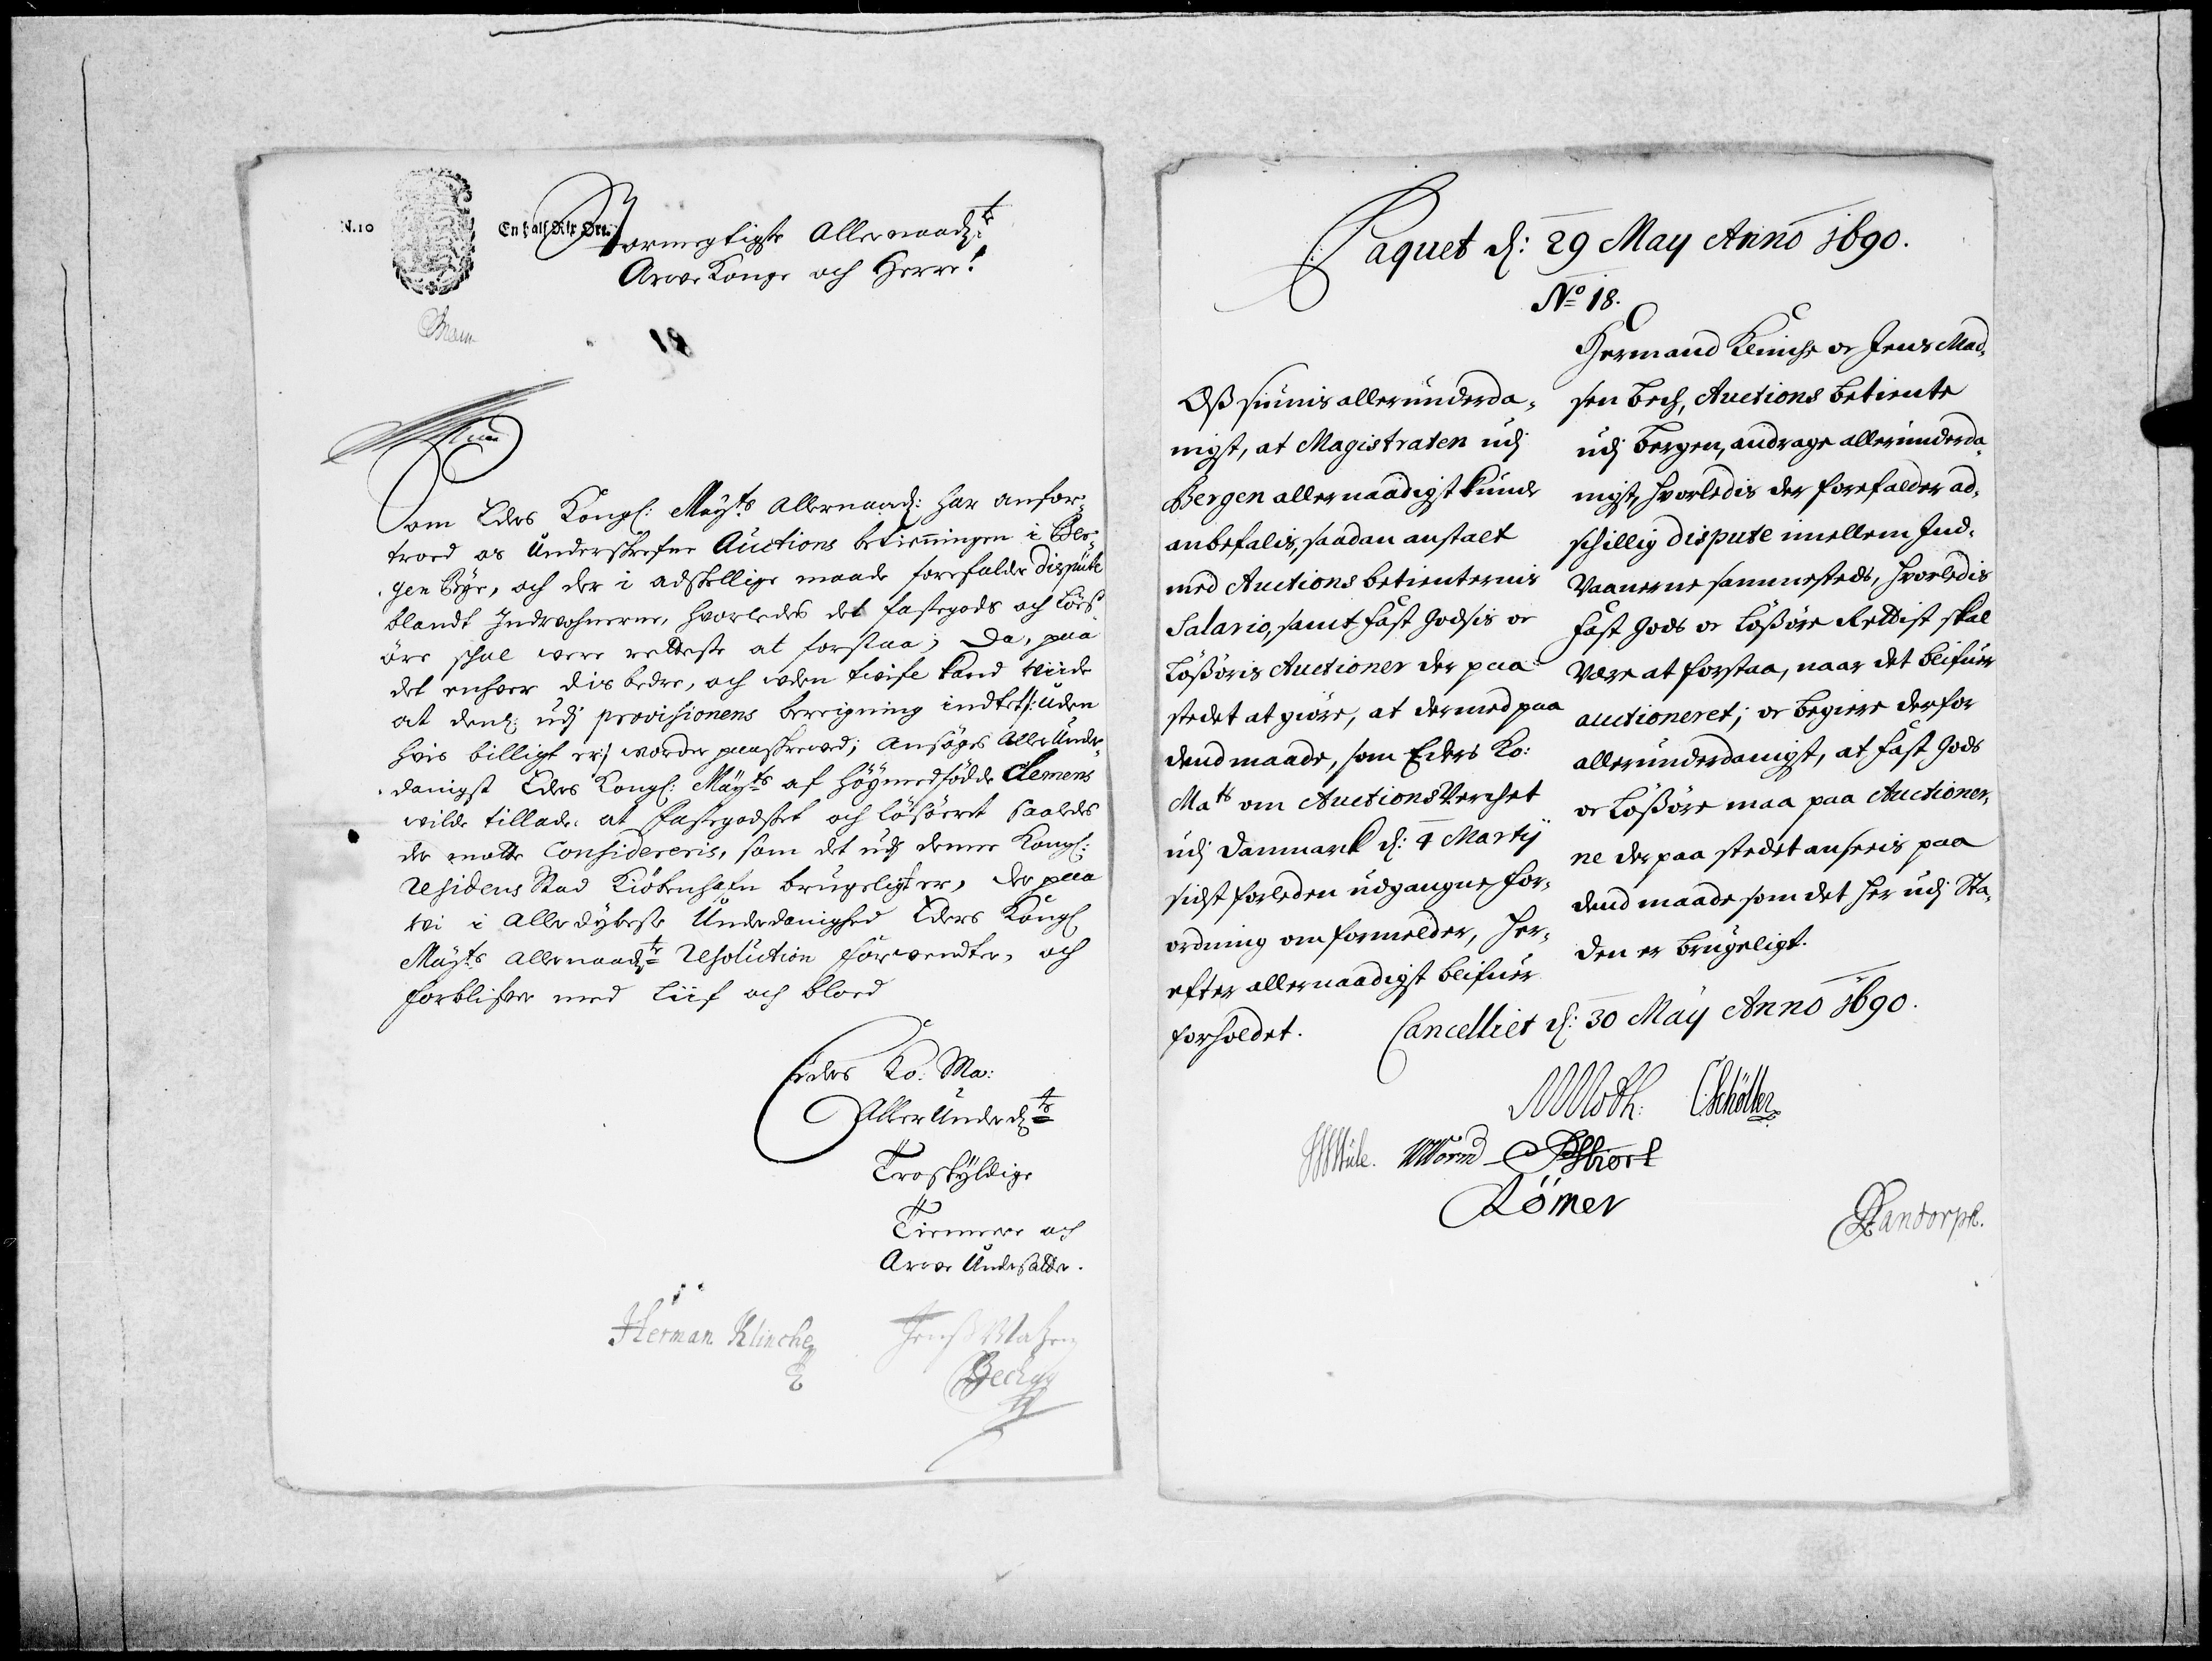 N. 10
En half Rix Ort.
Stormegtigste Allernaad:ste
Arve Konge och Herre!
18
Som Eders Kongl: Mayts Allernaad: har anfor-
troed os Underskrefne Auctions betienningen i Ber-
gen Bye, och der i adskellige maade forefalder dispute
blandt Indvohnerne, hvorledes det fastegods och Løes
øre skal were rettest at forstaa; Da, paa
det enhver dis bedre, och uden twifl kand wiide
at dend: udj provisionens beregning indtet /: uden
hvis billigt er :/ worder paaskrewed; Ansøges AllerUnder-
danigst Eders Kongl: Mayts af høymedfødde Clemens
wilde tillade, at Fastegodset och Løsøeret saaledes
der motte Considereris, som det udj denne Kongl:
Residens Stad Kiøbenhafn brugeligt er, der paa
wi i AllerdybesteUnderdanighed Eders Kongl
Mayts Allernaad:te Resolution forwendter, och
forblifver med Liif och bloed
Eders Ko: Ma:
AllerUnderd:te
Troskyldige
Tiennere och
Arve Undersatter.
Herman Klinche
Jenss Matzen
Bech
Paquet d: 29 May Anno 1690.
No 18.
Hermand Klinche oc Jens Mad-
sen Bech, Auctions betiente
udj Bergen, andrage allerunderda-
nigst, hvorledis der forefalder ad-
schillig dispute imellem Ind-
Vaanerne sammesteds, hvorledis
Fast Gods oc Løssøre Rettist skal
Være at forstaa, naar det blifuer
auctioneret; oc begiere derfor
allerunderdanigst, at Fast Gods
oc Løssøre maa paa Auctioner-
ne der paa stedet ansees paa
dend maade som det her udj Sta-
den er brugeligt.
Oss siunis allerunderda-
nigst, at Magistraten udj
Bergen allernaadigst kunde
anbefalis, saadan anstalt
med Auctions betienternis
Salario, samt Fast Godsis oc
Løssøris Auctioner der paa
stedet at giøre, at dermed paa
dend maade, som Eders Ko:
Mats om Auctions Verchet
udj Danmark d: 4 Martij
sidst forleden udgangne for-
ordning om formelder, her-
efter allernaadigst blifuer
forholdet.
Cancelliet d: 30 May Anno 1690.
MMoth: CSchøller
WWorm
Rømer